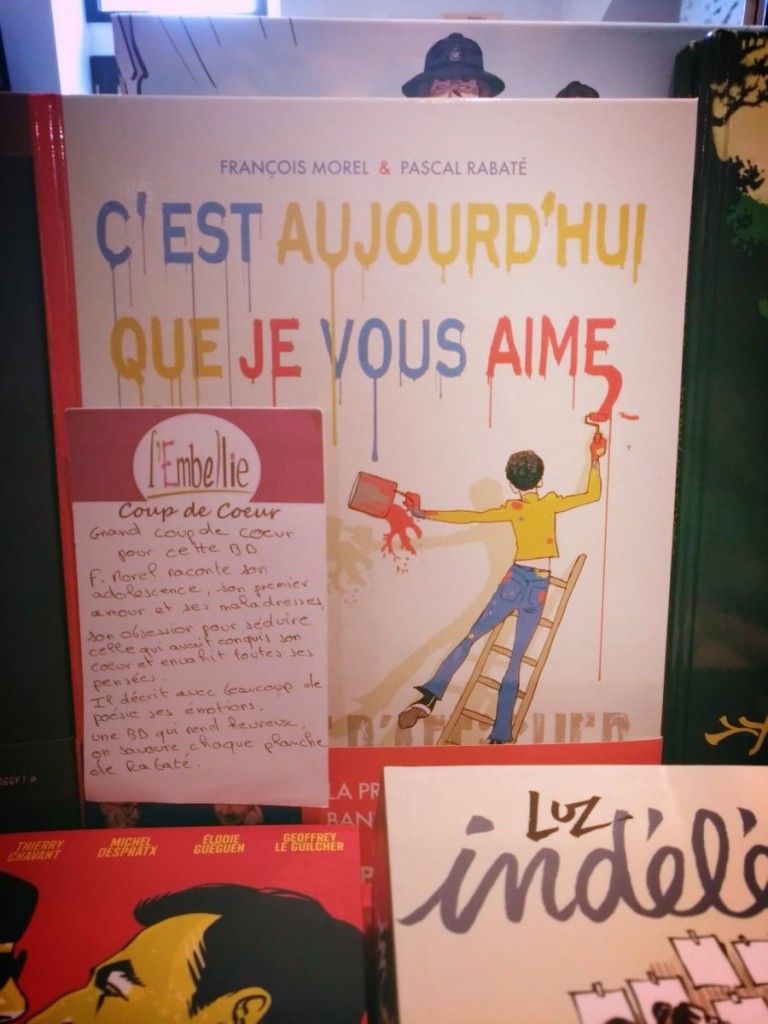 FRANÇOIS MOREL & PASCAL RABATÉ
C'EST AUJOURD'HUI
QUE JE VOUS AIME
l'Embellie
Coup de Coeur
Grand coup de coeur
pour cette BD
F. Morel raconte son
adolescence, son premier
amour et ses maladresses,
son obsession pour séduire
celle qui avait conquis son
coeur et envahit toutes ses
pensées.
Il décrit avec beaucoup de
poésie ses émotions.
une BD qui rend heureux,
on savoure chaque planche
de Rabaté.
LA PR
BAN
OGGY ! »
THIERRY CHAVANT
MICHEL DESPRATX
ÉLODIE GUEGUEN
GEOFFREY LE GUILCHER
LUZ
indélé